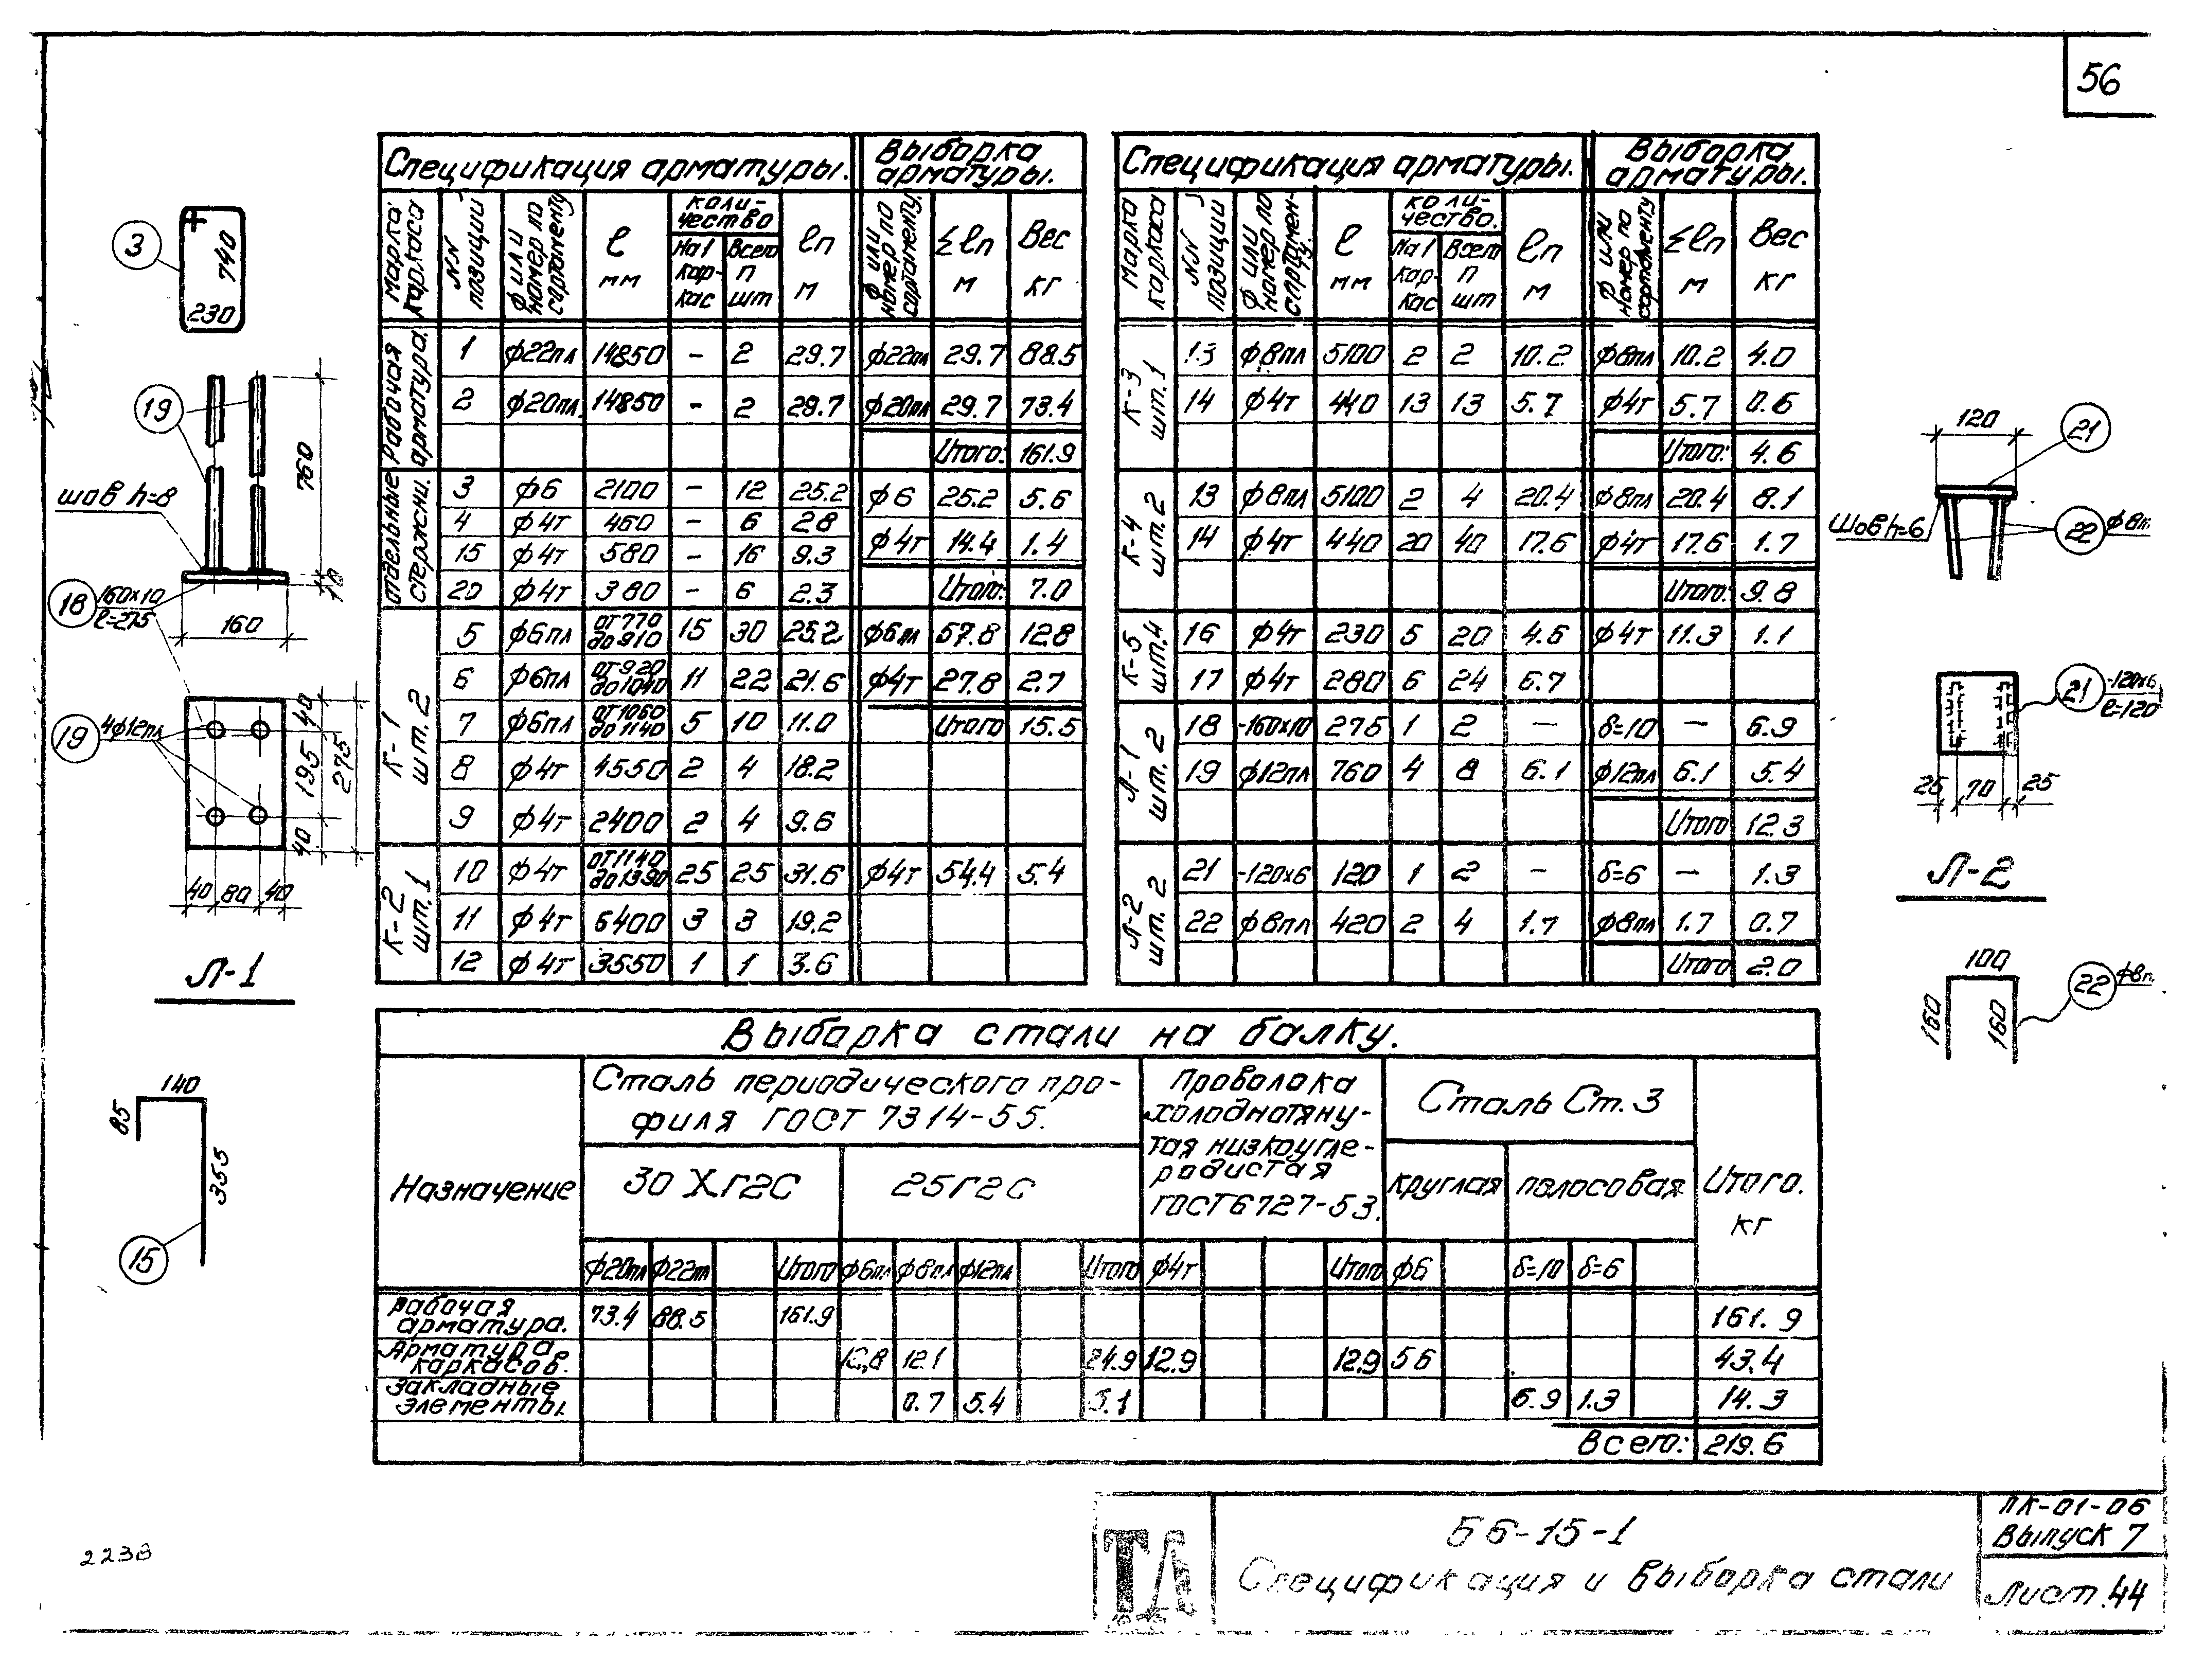 56
Спецификация арматуры. Выборка арматуры.
Марка каркаса | NN позиции | ф или номер по сортаменту | ℓ мм | Количество На 1 каркас | Всего п шт | ℓп м | ф или номер по сортаменту. | Σℓп м | Вес кг
Рабочая арматура.
1 ф22пл 14850 – 2 29.7 ф22пл 29.7 88.5
2 ф20пл. 14850 – 2 29.7 ф20пл 29.7 73.4
Итого: 161.9
Отдельные стержни.
3 ф6 2100 – 12 25.2 ф6 25.2 5.6
4 ф4т 460 – 6 28 ф4т 14.4 1.4
15 ф4т 580 – 16 9.3
20 ф4т 380 – 6 2.3 Итого: 7.0
К-1 шт. 2
5 ф6пл от 770 до 910 15 30 25.2 ф6пл 57.8 12.8
6 ф6пл от 920 до 1040 11 22 21.6 ф4т 27.8 2.7
7 ф6пл от 1060 до 1140 5 10 11.0 Итого 15.5
8 ф4т 4550 2 4 18.2
9 ф4т 2400 2 4 9.6
К-2 шт. 1
10 ф4т от 1140 до 1390 25 25 31.6 ф4т 54.4 5.4
11 ф4т 6400 3 3 19.2
12 ф4т 3550 1 1 3.6
Спецификация арматуры. Выборка арматуры.
Марка каркаса | NN позиции | ф или номер по сортамен-ту. | ℓ мм | Количество. На 1 каркас | Всего п шт | ℓп м | ф или номер по сортаменту | Σℓп м | Вес кг
К-3 шт. 1
13 ф8пл 5100 2 2 10.2 ф8пл 10.2 4.0
14 ф4т 440 13 13 5.7 ф4т 5.7 0.6
Итого: 4.6
К-4 шт. 2
13 ф8пл 5100 2 4 20.4 ф8пл 20.4 8.1
14 ф4т 440 20 40 17.6 ф4т 17.6 1.7
Итого: 9.8
К-5 шт. 4
16 ф4т 230 5 20 4.6 ф4т 11.3 1.1
17 ф4т 280 6 24 6.7
Л-1 шт. 2
18 -160х10 275 1 2 – δ=10 – 6.9
19 ф12пл 760 4 8 6.1 ф12пл 6.1 5.4
Итого 12.3
Л-2 шт. 2
21 -120х6 120 1 2 – δ=6 – 1.3
22 ф8пл 420 2 4 1.7 ф8пл 1.7 0.7
Итого 2.0
3
740
230
19
760
шов h=8
10
18 160х10
ℓ=275
160
19 4ф12пл
40
195
275
40
40 80 40
Л-1
140
85
355
15
120
21
Шов h=6
22 ф8п.
21 -120х6
ℓ=120
25 70 25
Л-2
100
160
160
22 ф8п.
Выборка стали на балку.
Назначение
Сталь периодического про-
филя ГОСТ 7314-55.
30 ХГ2С 25Г2С
Проволока
холоднотяну-
тая низкоугле-
родистая
ГОСТ 6727-53.
Сталь Ст. 3
круглая полосовая
Итого. кг
ф20пл ф22пл Итого ф6пл ф8пл ф12пл Итого ф4т Итого ф6 δ=10 δ=6
Рабочая арматура. 73.4 88.5 161.9 161.9
Арматура каркасов. 12,8 12.1 24.9 12.9 12.9 5.6 43.4
Закладные элементы. 0.7 5.4 6.1 6.9 1.3 14.3
Всего: 219.6
2238
ТД
Б6-15-1
Спецификация и выборка стали
ПК-01-06
Выпуск 7
Лист 44